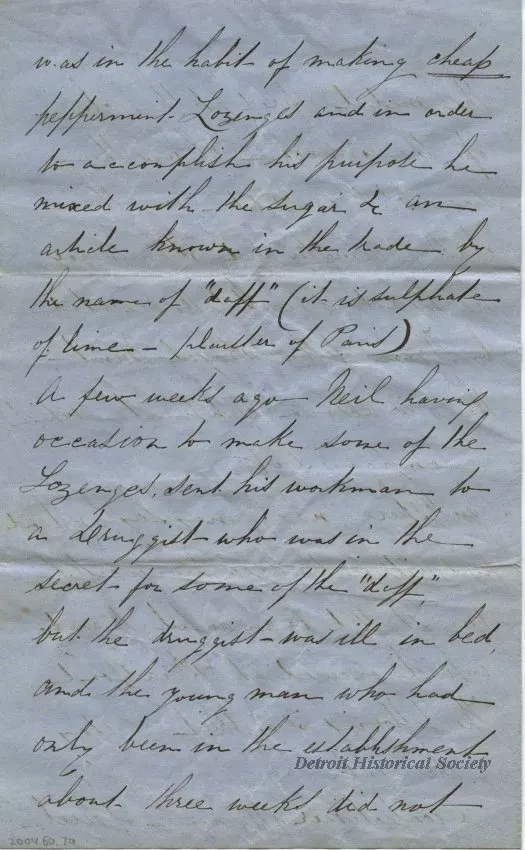 was in the habit of making cheap
peppermint Lozenges and in order
to accomplish his purpose he
mixed with the sugar &c an
article known in the trade by
the name of "daff" (it is sulphate
of lime – plaister of Paris)
A few weeks ago Neil having
occasion to make some of the
Lozenges, sent his workman to
a druggist who was in the
secret for some of the "daff,"
but the druggist was ill in bed,
and the young man who had
only been in the establishment
Detroit Historical Society
about three weeks did not
2004.60.79